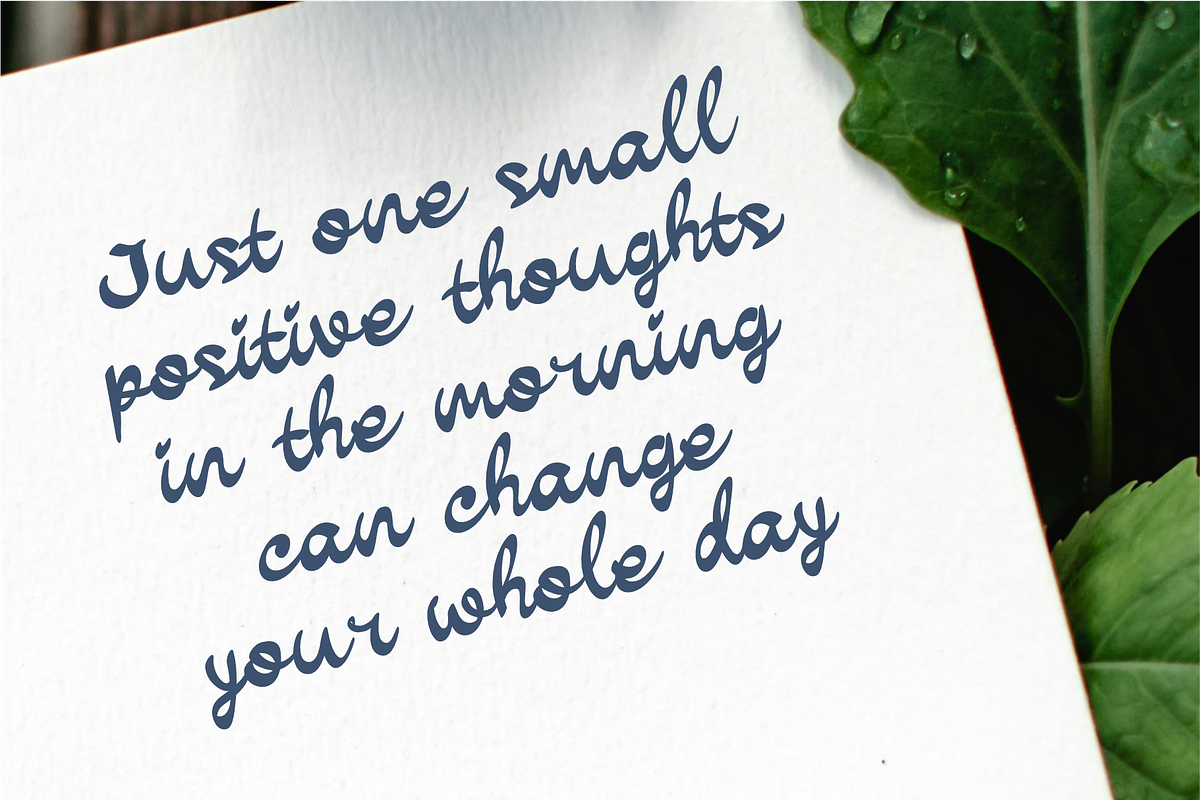 Just one small
positive thoughts
in the morning
can change
your whole day